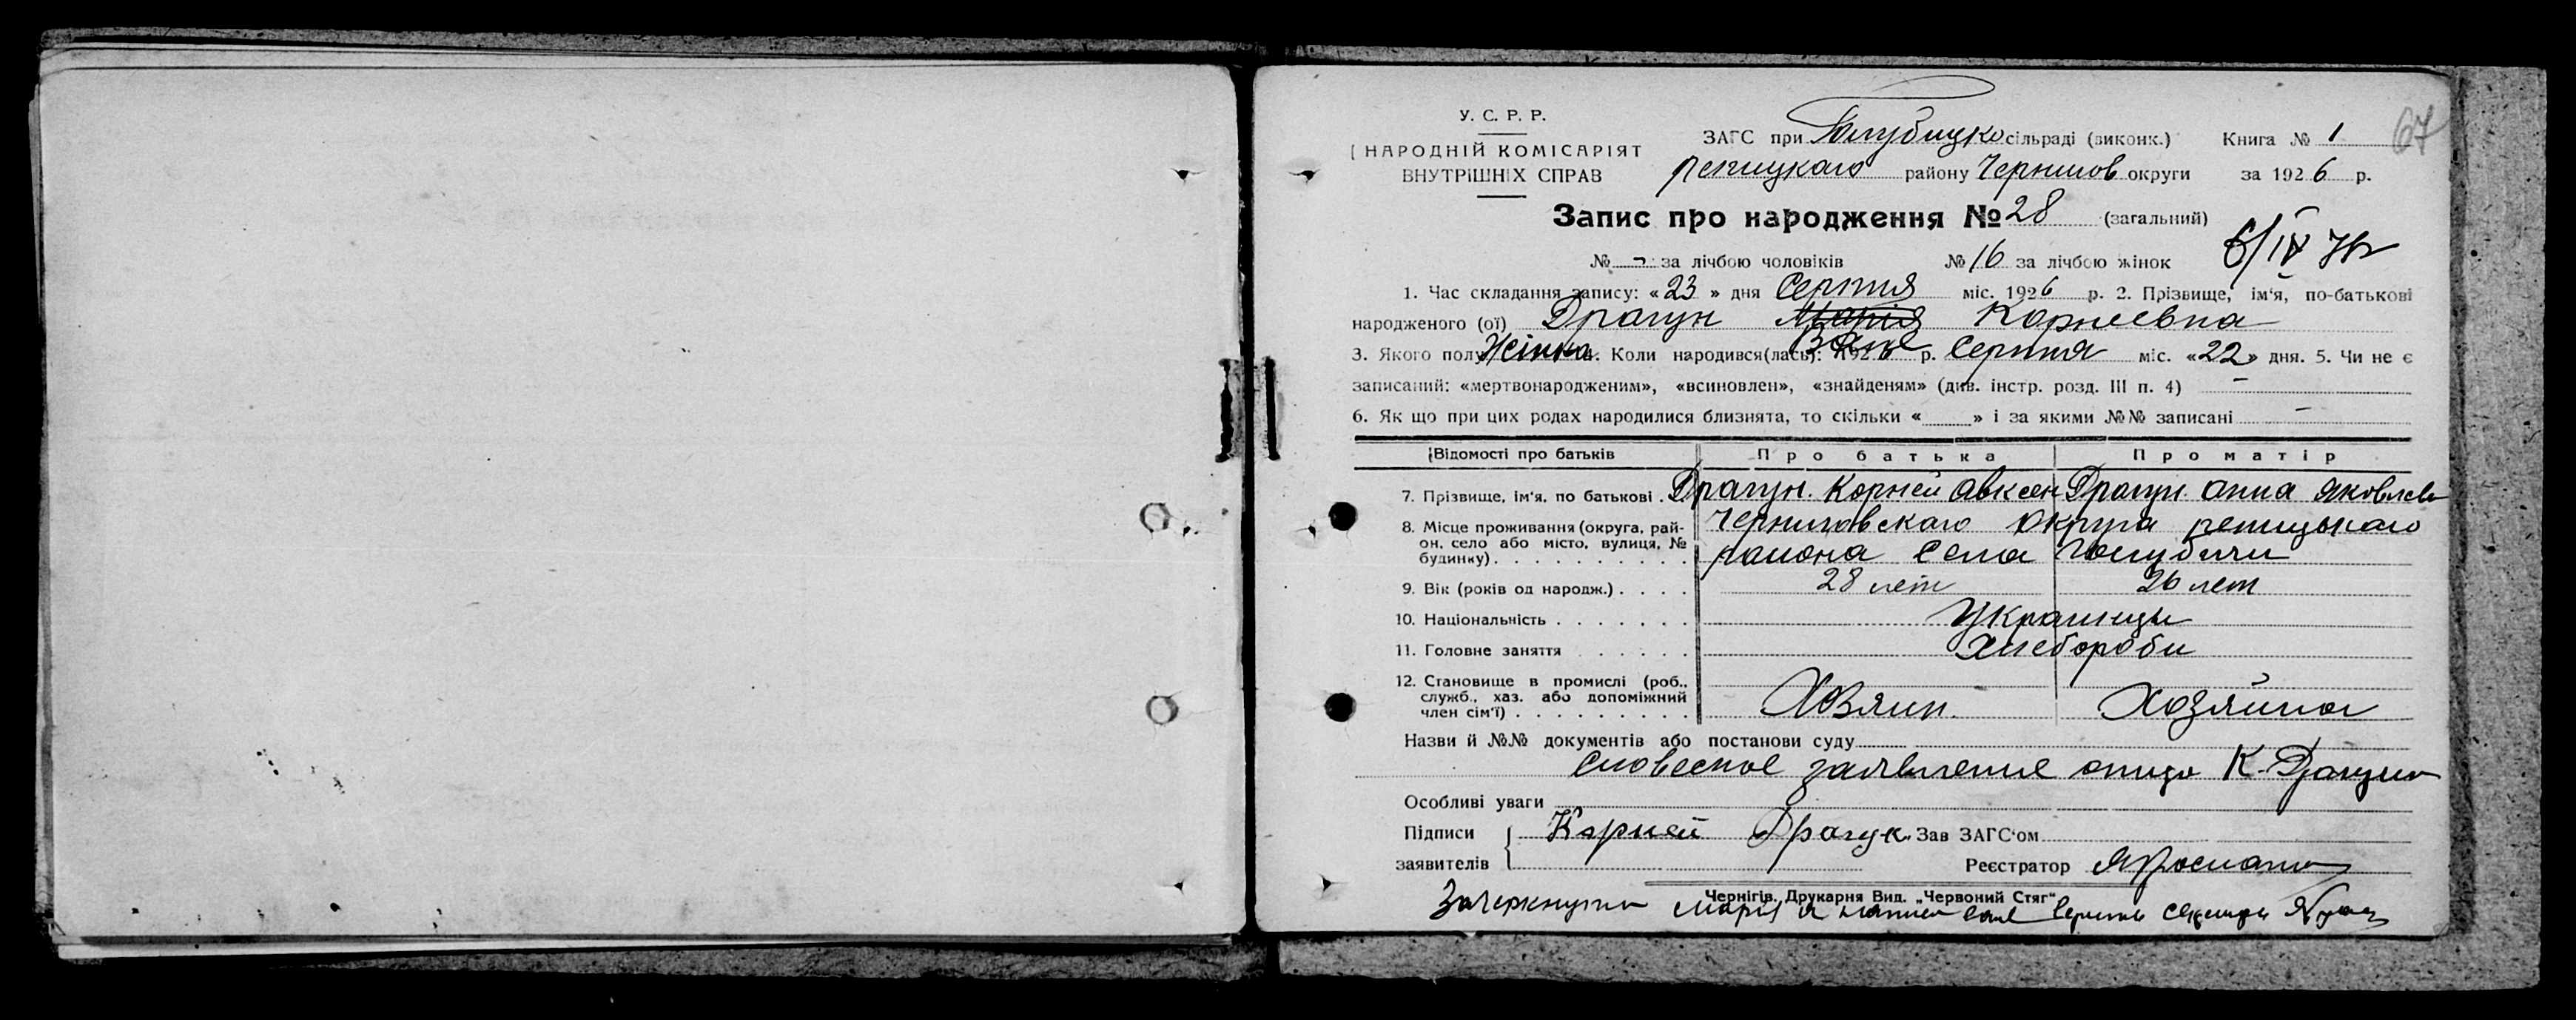 67
У. С. Р. Р.
НАРОДНІЙ КОМІСАРІЯТ
ВНУТРІШНІХ СПРАВ
ЗАГС при Голубицко сільраді (виконк.) Книга № 1
репицкаго району Чернигов округи за 1926 р.
Запис про народження № 28 (загальний)
№ - за лічбою чоловіків № 16 за лічбою жінок
1. Час складання запису: « 23 » дня Серпня міс. 1926 р. 2. Прізвище, ім'я, по-батькові
народженого (ої) Драгун Мария Корнеевна
3. Якого полу Жінка 4. Коли народився(лась): 1926 р. Серпня міс. «22» дня. 5. Чи не є
записаний: «мертвонародженим», «всиновлен», «знайденям» (див. інстр. розд. III п. 4) -
6. Як що при цих родах народилися близнята, то скільки « » і за якими №№ записані -
Відомості про батьків Про батька Про матір
7. Прізвище, ім'я, по батькові . Драгун Корней Авксен Драгун Анна Яковлев
8. Місце проживання (округа, рай-
он, село або місто, вулиця, №
будинку) . . . . . . . . . .
Черниговскаго округа репицькаго
района Села Голубичи
9. Вік (років од народж.) . . . . 28 лет 26 лет
10. Національність . . . . . . . Украинцы
11. Головне заняття . . . . . Хлебороби
12. Становище в промислі (роб.,
служб., хаз. або допоміжний
член сім'ї) . . . . . . . . . Хозяин. Хозяйка
Назви й №№ документів або постанови суду
Словесное заявление отца К. Драгуна
Особливі уваги
Підписи Корней Драгун Зав ЗАГС'ом
заявителів Реєстратор
Чернігів. Друкарня Вид. „Червоний Стяг"
Зачеркнуто Мария